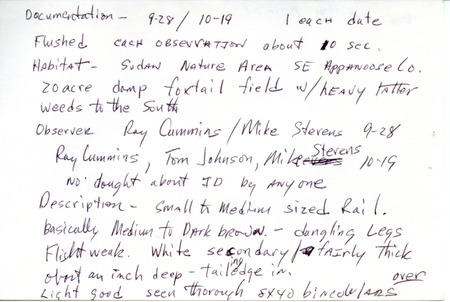 Documentation - 9-28 / 10-19 1 each date
Flushed each observation about 10 sec.
Habitat - Sudan Nature Area SE Appanoose Co.
20 acre damp foxtail field w/ heavy taller
weeds to the South
Observer Ray Cummins / Mike Stevens 9-28
Ray Cummins, Tom Johnson, Mike Stevens 10-19
No dought about ID by anyone
Description - Small to Medium sized Rail.
Basically Medium to Dark brown - dangling Legs
Flight weak. White secondary / fairly thick
about an inch deep - tailing edge in.
over
Light good seen thorough 8x40 binoculars